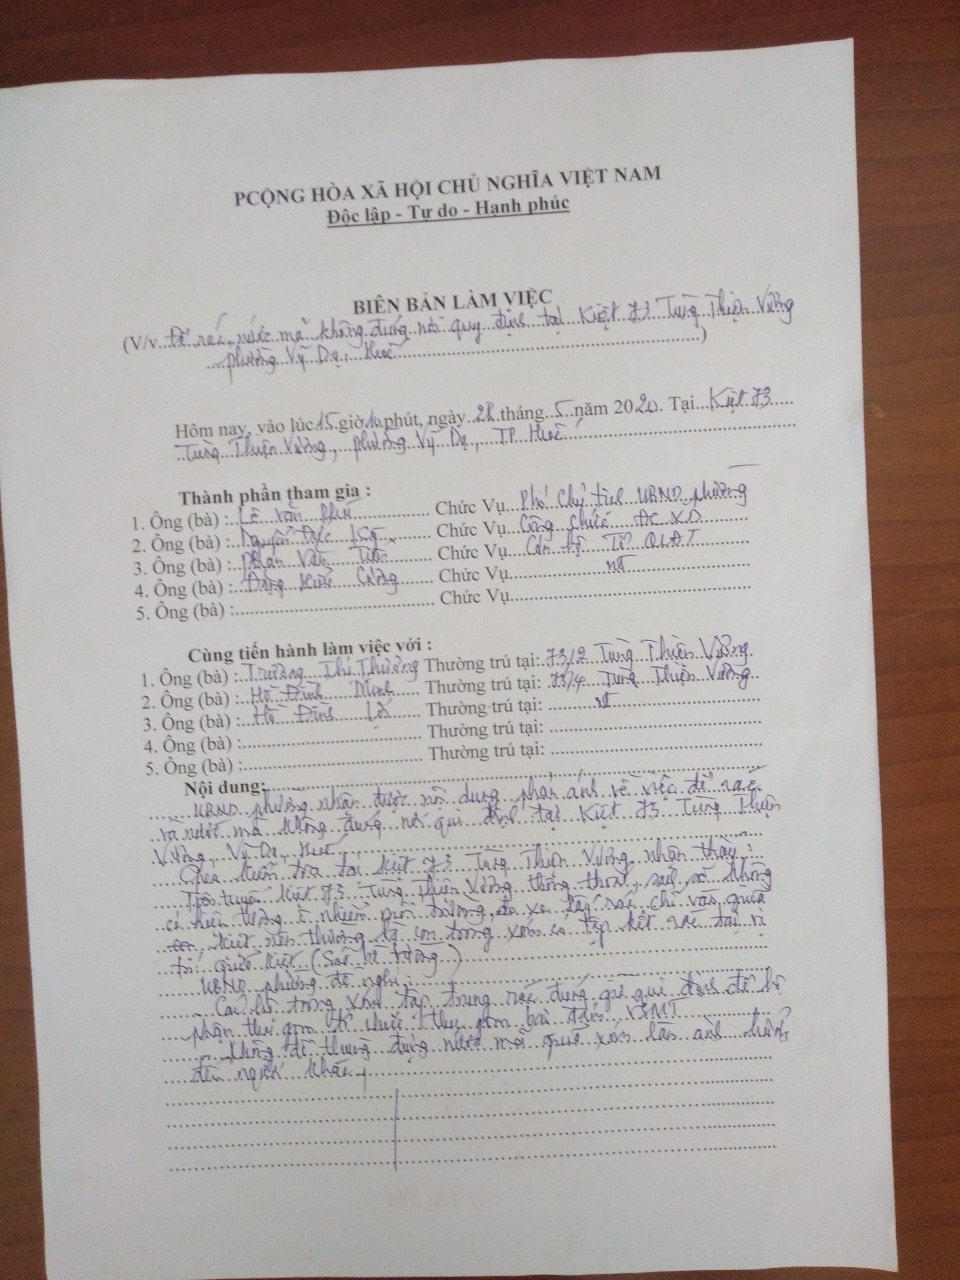 PCỘNG HÒA XÃ HỘI CHỦ NGHĨA VIỆT NAM
Độc lập - Tự do - Hạnh phúc
BIÊN BẢN LÀM VIỆC
(V/v Để rác, nước mà không đúng nơi quy định tại Kiệt 73 Tùng Thiện Vương
phường Vỹ Dạ, Huế)
Hôm nay, vào lúc 15 giờ 10 phút, ngày 28 tháng 5 năm 2020. Tại Kiệt 73
Tùng Thiện Vương, phường Vỹ Dạ, TP Huế
Thành phần tham gia :
1. Ông (bà) : Lê Văn Phú Chức Vụ Phó Chủ tịch UBND phường
2. Ông (bà) : Nguyễn Đức Chức Vụ Công chức ĐC XD
3. Ông (bà) : Phan Văn Tiến Chức Vụ Cán bộ Tổ QLĐT
4. Ông (bà) : Đặng Hữu Cường Chức Vụ nt
5. Ông (bà) : Chức Vụ
Cùng tiến hành làm việc với :
1. Ông (bà) : Trương Thị Thương Thường trú tại: 73/2 Tùng Thiện Vương
2. Ông (bà) : Hồ Đình Minh Thường trú tại: 73/4 Tùng Thiện Vương
3. Ông (bà) : Hồ Đình Lợi Thường trú tại: nt
4. Ông (bà) : Thường trú tại:
5. Ông (bà) : Thường trú tại:
Nội dung:
UBND phường nhận được nội dung phản ánh về việc để rác
và nước mà không đúng nơi qui định tại Kiệt 73 Tùng Thiện
Vương, Vỹ Dạ, Huế
Qua kiểm tra tại kiệt 73 Tùng Thiện Vương nhận thấy :
Trên tuyến kiệt 73 Tùng Thiện Vương thông thoát, sạch sẽ không
có hiện tượng ô nhiễm môi trường, do xe lấy rác chỉ vào giữa
kiệt nên thường là con trong xóm có tập kết rác tại vị
trí giữa kiệt (Sát bê tường)
UBND phường đề nghị :
Các hộ trong xóm tập trung rác đúng giờ qui định để bộ
phận thu gom tổ chức thu gom bảo đảm VSMT
Không để thùng đựng nước mà giữa xóm làm ảnh hưởng
đến người khác